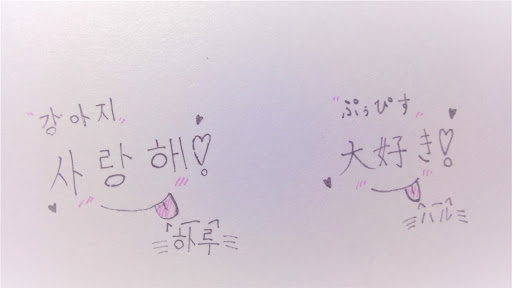 "강아지"
사랑해!
하루
"ぷぅぴす"
大好き!
ハル